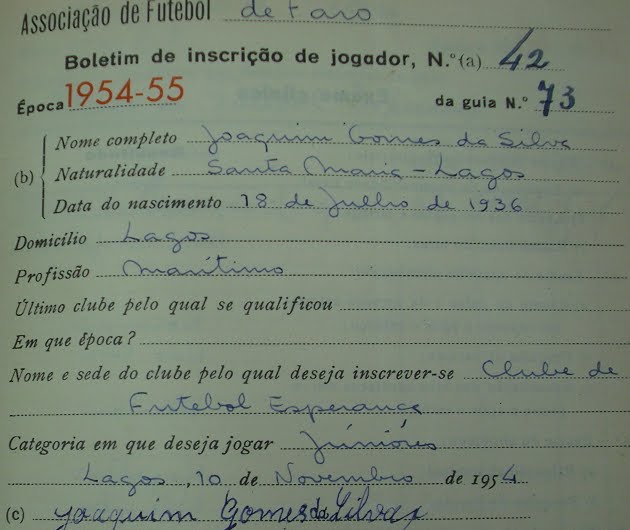 Associação de Futebol de Faro
Boletim de inscrição de jogador, N.º (a) 42
Época 1954-55 da guia N.º 73
(b) Nome completo Joaquim Gomes da Silva
Naturalidade Santa Maria - Lagos
Data do nascimento 18 de Julho de 1936
Domicílio Lagos
Profissão Marítimo
Último clube pelo qual se qualificou
Em que época?
Nome e sede do clube pelo qual deseja inscrever-se Clube de
Futebol Esperança
Categoria em que deseja jogar Júniores
Lagos, 10 de Novembro de 1954
(c) Joaquim Gomes da Silva